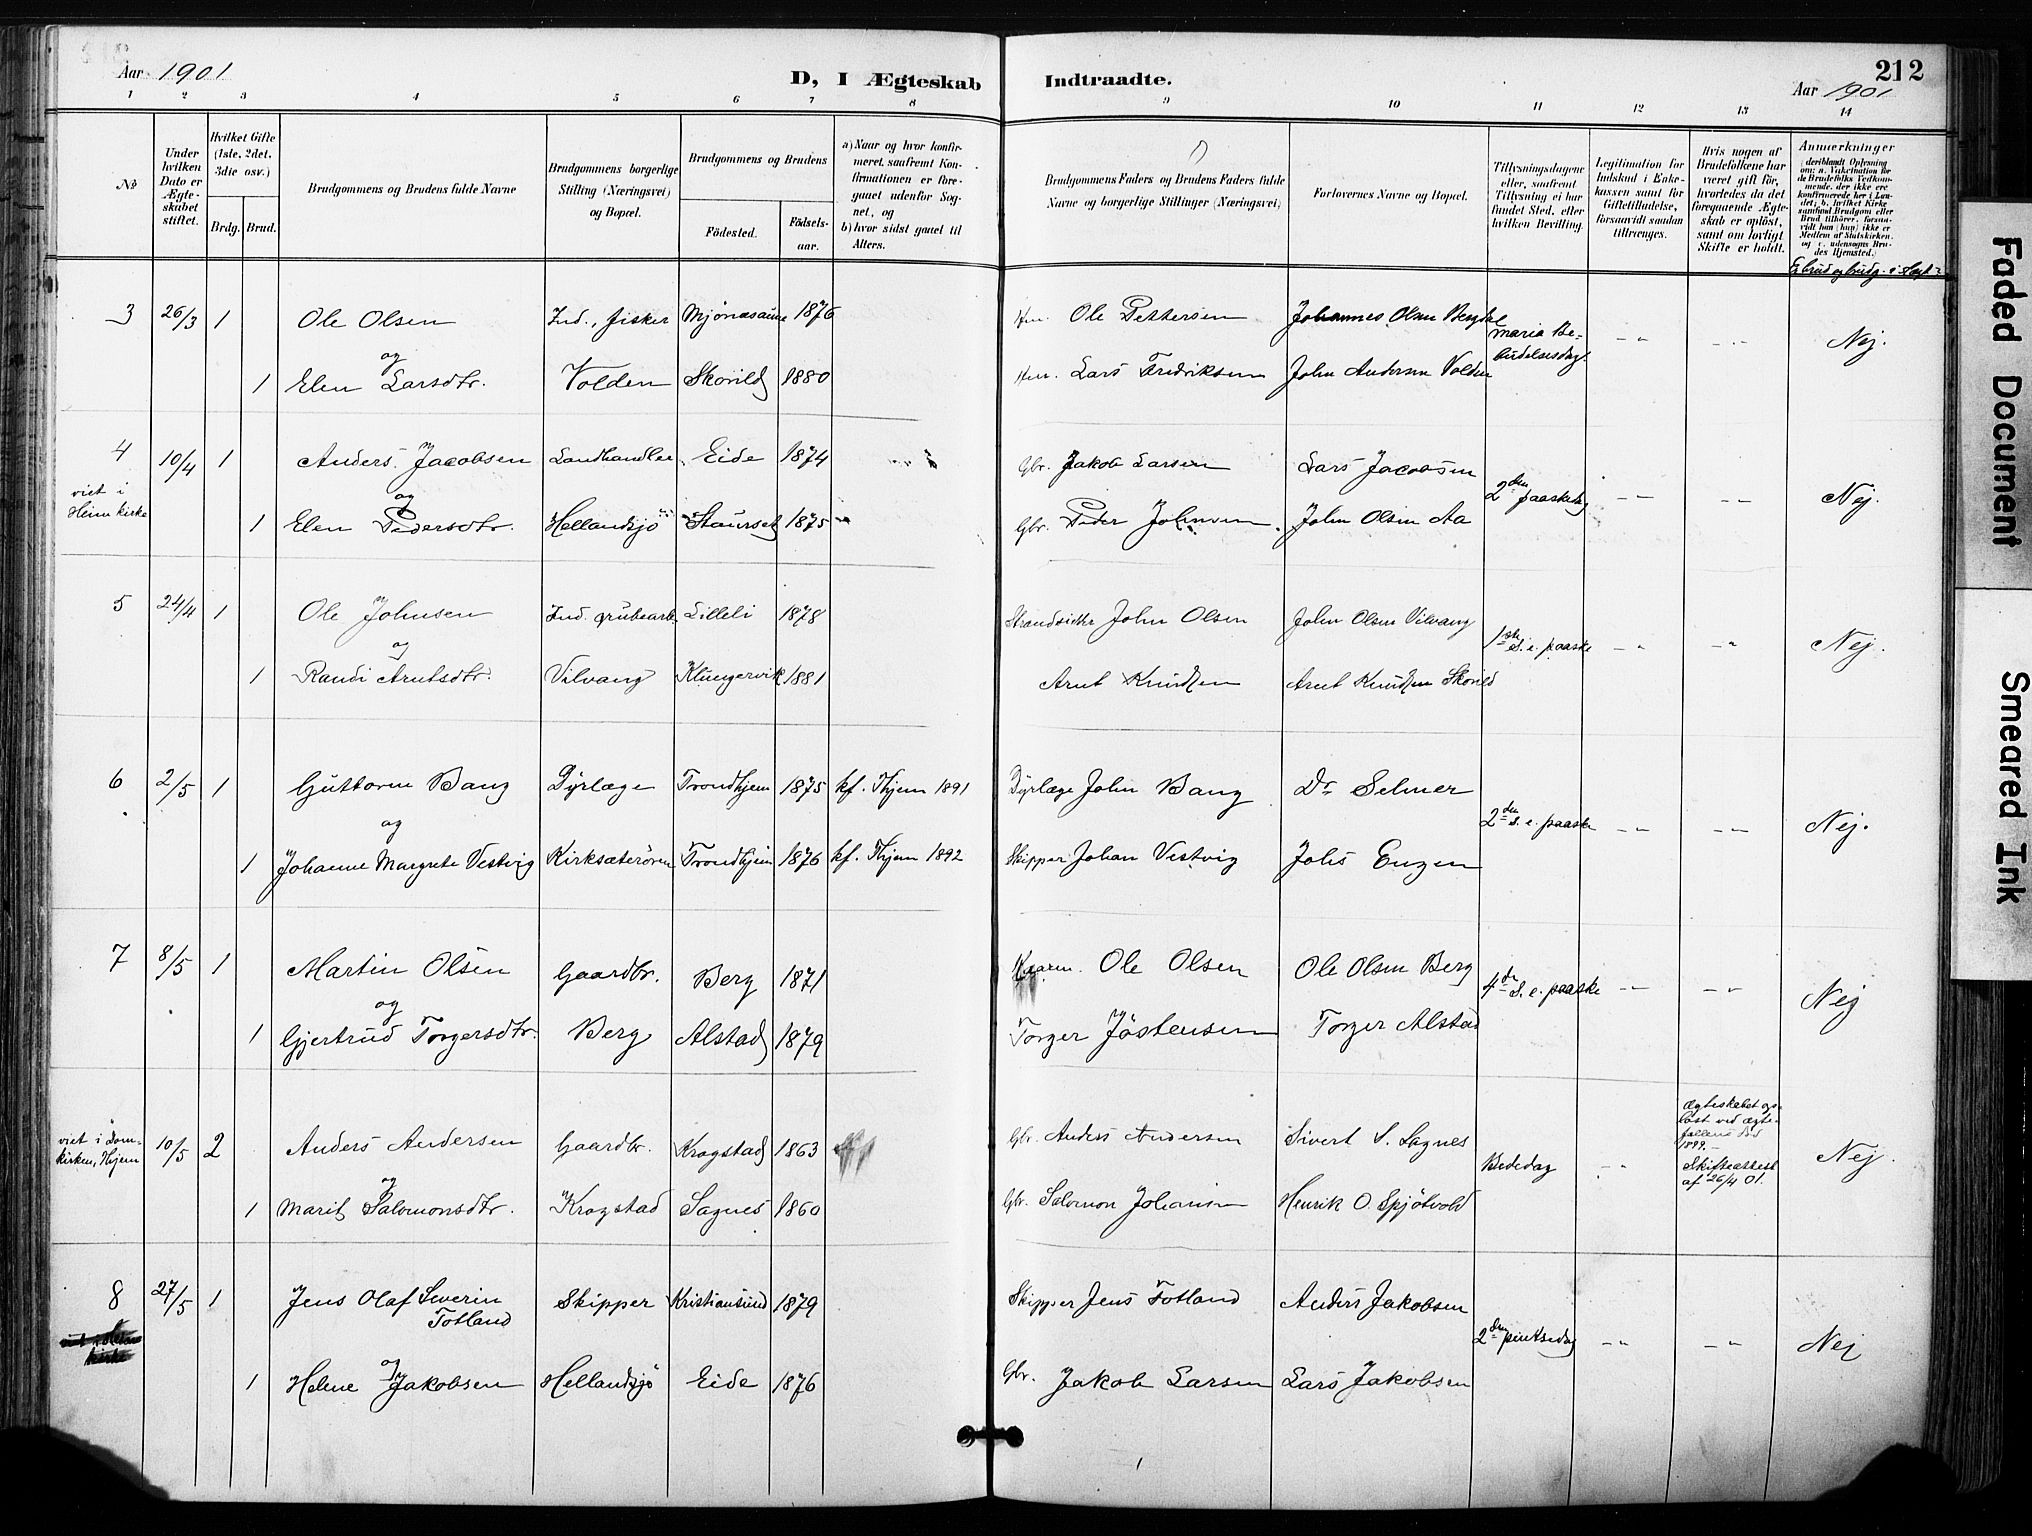 Aar 1901
D, I Ægteskab Indtraadte.
212
Aar 1901
1 2 3 4 5 6 7 8 9 10 11 12 13 14
No
Under hvilken Dato er Ægteskabet stiftet.
Hvilket Gifte (1ste, 2det, 3die osv.)
Brdg. Brud.
Brudgommens og Brudens fulde Navne
Brudgommens borgerlige Stilling (Næringsvei) og Bopæl.
Brudgommens og Brudens
Födested. Födselsaar.
a) Naar og hvor konfirmeret, saafremt Konfirmationen er foregaaet udenfor Sognet, og
b) hvor sidst gaaet til Alters.
Brudgommens Faders og Brudens Faders fulde Navne og borgerlige Stillinger (Næringsvei)
Forlovernes Navne og Bopæl.
Tillysningsdagene eller, saafremt Tillysning ei har fundet Sted, efter hvilken Bevilling.
Legitimation for Indskud i Enkekassen samt for Giftetilladelse, forsaavidt saadan tiltrænges.
Hvis nogen af Brudefolkene har været gift för, hvorledes da det foregaaende Ægteskab er oplöst, samt om lovligt Skifte er holdt.
Anmerkninger (deriblandt Oplysning om: a. Vakcination for de Brudefolks Vedkommende, der ikke ere konfirmerede her i Landet; b. hvilket Kirkesamfund Brudgom eller Brud tilhörer, forsaavidt han (hun) ikke er Medlem af Statskirken, og c. udensogns Brudes Hjemsted.)
Er brud og brudg. i slegt?
3 26/3 1 Ole Olsen Ind., fisker 1876 Ole Pettersen Johannes Olsen
og
1 Elen Larsdtr. Volden Skorild 1880 Lars Fredriksen John Andersen Volden
Maria Bebudelsesdag
Nej.
4 10/4 1 Anders Jacobsen Landhandler Eide 1874 Gbr. Jakob Larsen Lars Jacobsen
viet i Heim kirke
og
1 Elen Pedersdtr. Hellandsjö Staurset 1875 Gbr. Peder Johnsen John Olsen Aa
2den paaskedag
Nej.
5 24/4 1 Ole Johnsen Ind. grubearb. Lilleli 1878 Strandsidder John Olsen John Olsen Vilvang
og
1 Randi Arntsdtr. Vilvang Klungervik 1881 Arnt Knudsen Arnt Knudsen Skorild
1ste S. e. paaske
Nej.
6 2/5 1 Guttorm Bang Dyrlæge Trondhjem 1875 kf. Thjem 1891 Dyrlæge John Bang Dr Selmer
og
1 Johanne Margrete Vestvig Kirksæterören Trondhjem 1876 kf. Thjem 1892 Skipper Johan Vestvig Johs Eugen
2den S. e. paaske
Nej.
7 8/5 1 Martin Olsen Gaardbr. Berg 1871 Ole Olsen Ole Olsen Berg
og
1 Gjertrud Torgersdtr. Berg Alstad 1879 Torger Jöstensen Torger Alstad
4de S. e. paaske
Nej
viet i Domkirken, Thjem
10/5 2 Anders Andersen Gaardbr. Krogstad 1863 Gbr. Anders Andersen Sivert S. Sagnes
og
1 Marit Salomonsdtr. Krogstad Sagnes 1860 Gbr. Salomon Johansen Henrik O. Spjötvold
Bededag
Ægteskabet oplöst ved ægtefællens död 1899.-
Skifteattest af 26/4 01.
Nej.
8 27/5 1 Jens Olaf Severin Totland Skipper Kristiansund 1879 Skipper Jens Totland Anders Jakobsen
og
1 Helene Jakobsen Hellandsjö Eide 1876 Gbr. Jakob Larsen Lars Jakobsen
2den pintsedag
Nej
Faded Document
Smeared Ink